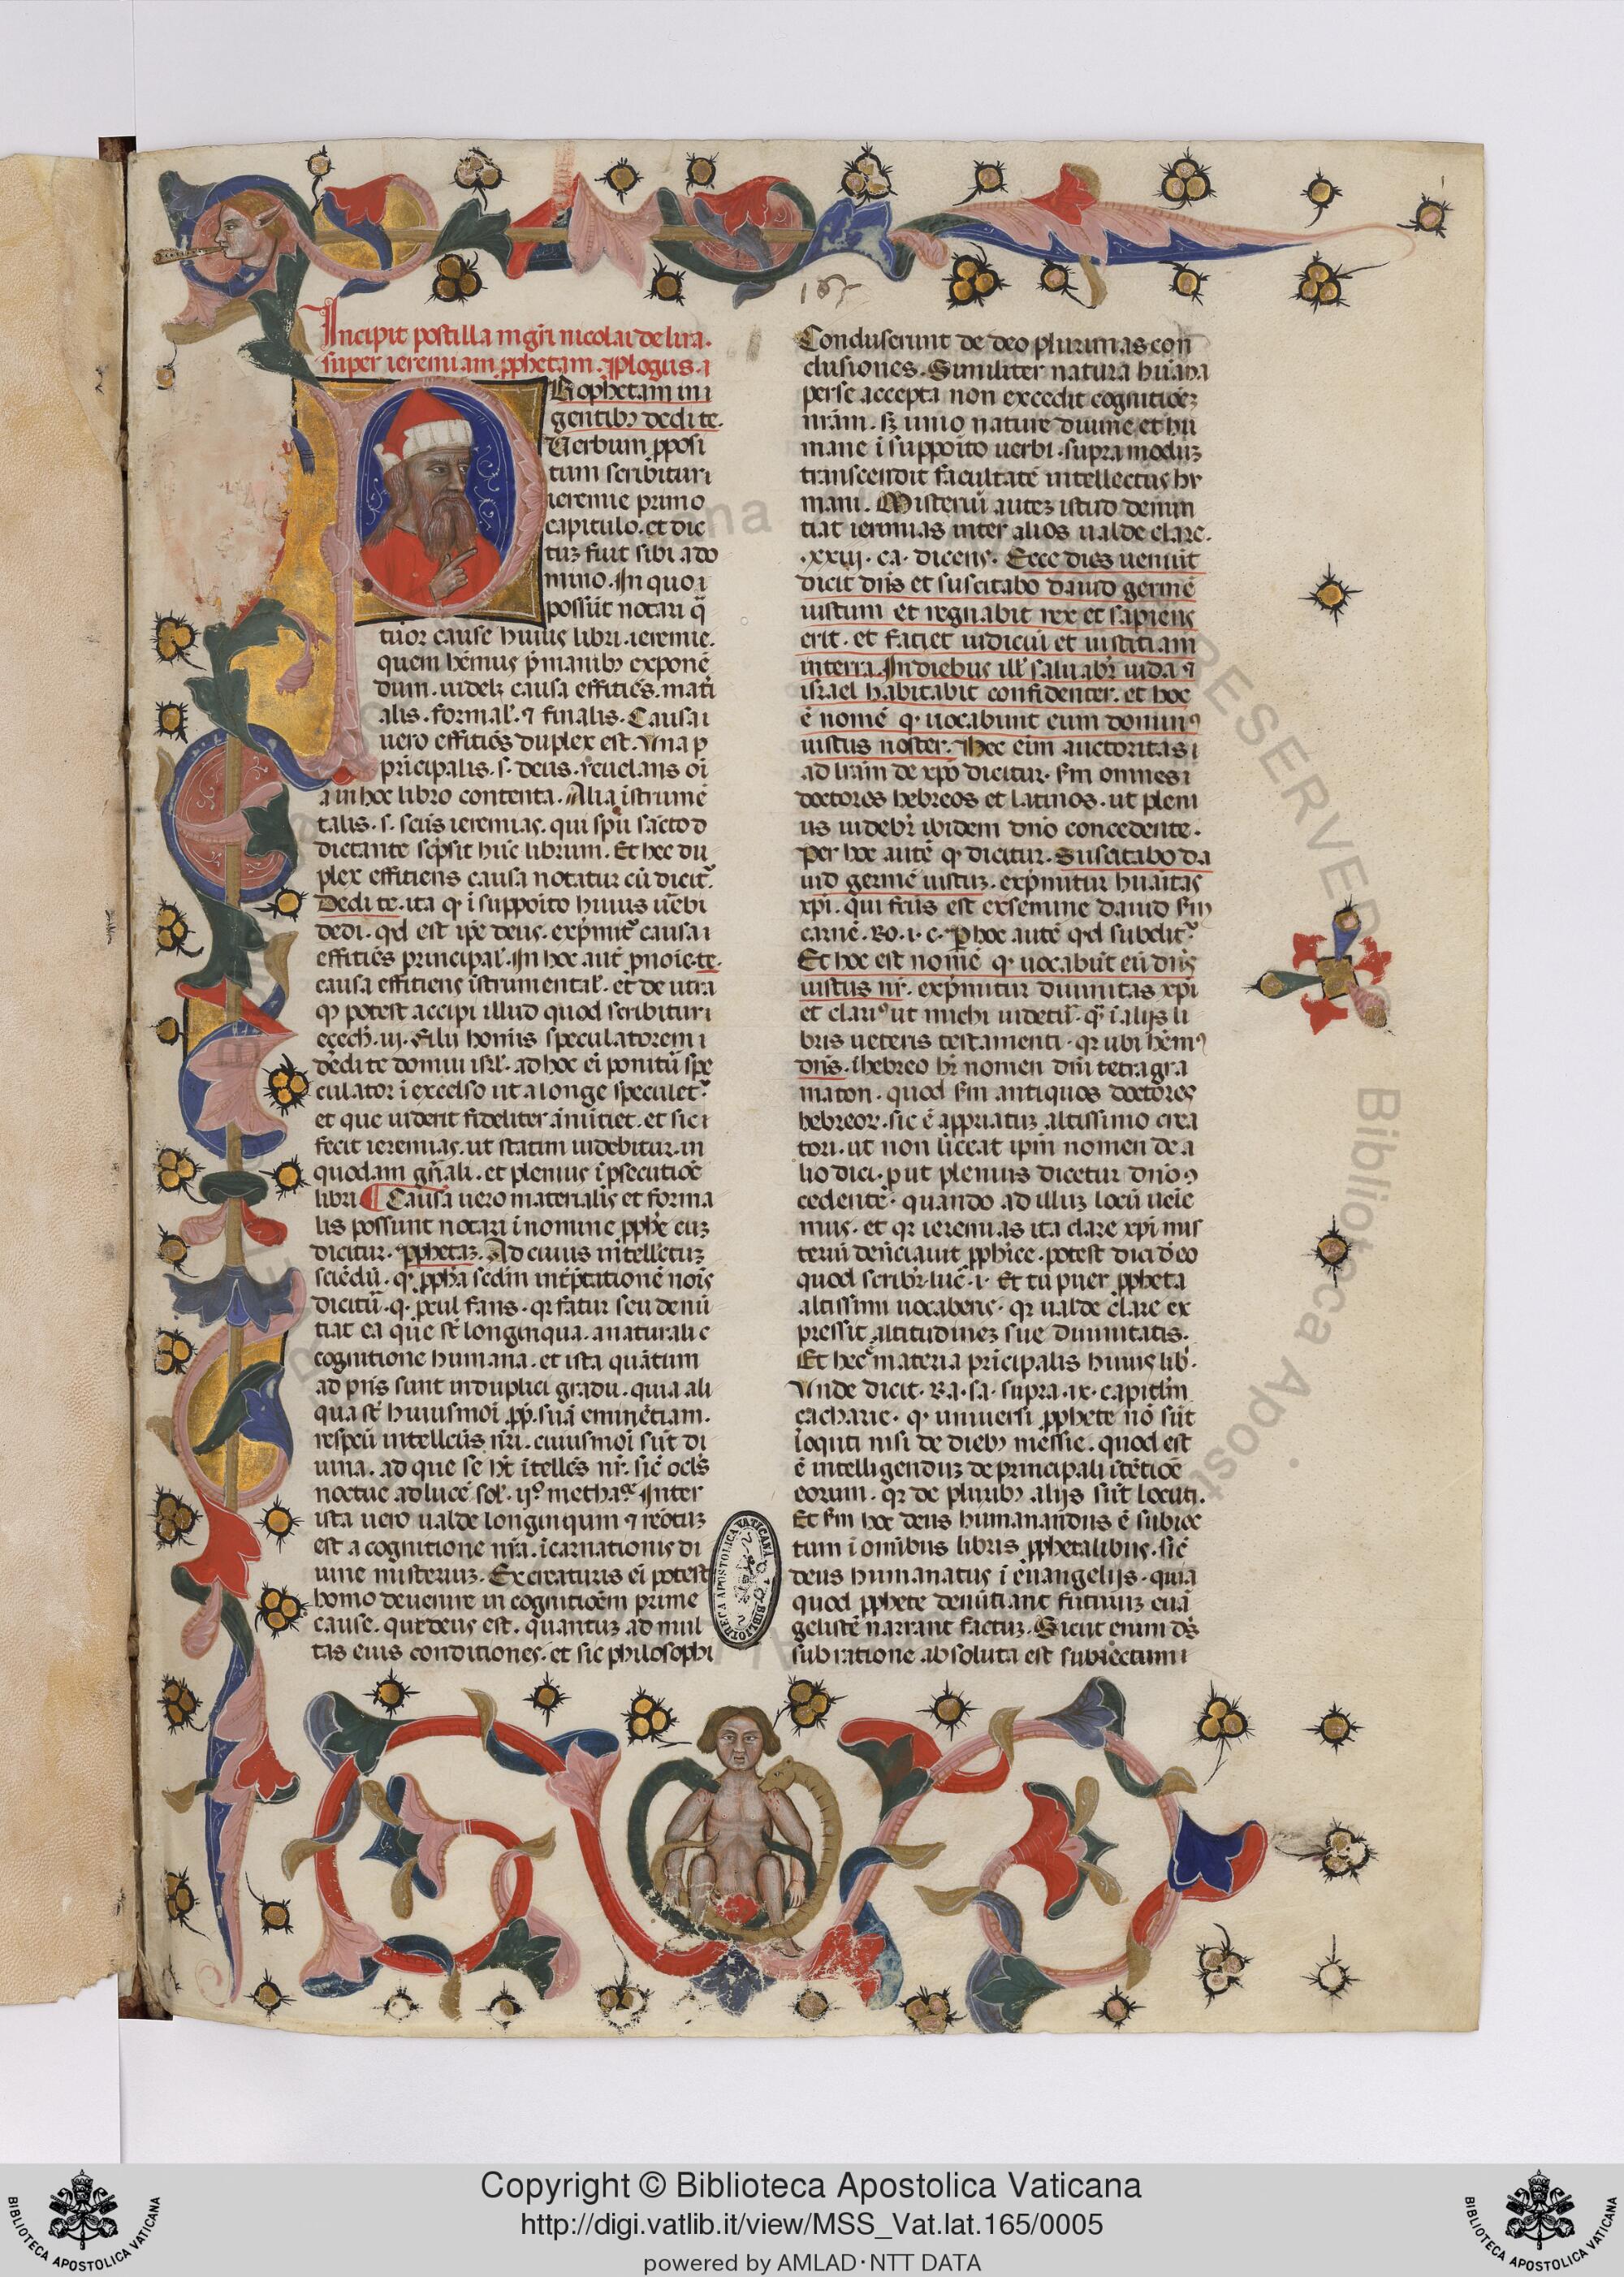 Incipit postilla mgr̃i nicolai de lira.
super ieremiam ꝓphetam. Ꝓlogus. i
PRophetam in i
gentibꝫ dedi te.
Verbum ꝓposi
tum scribitur i
ieremie primo
capitulo. et dic
tuꝫ fuit sibi a do
mino. In quo i
possũt notari q̃
tuor cause huius libri. ieremie.
quem hẽmus p̃manibꝫ exponẽ
dum. uidelꝫ causa effitiẽs. mati
alis. formal̃. ⁊ finalis. Causa i
uero effitiẽs duplex est. Vna p
pricipalis. s. deus. reuelans oĩ
a in hoc libro contenta. Alia ĩstrumẽ
talis. s. sc̃us ieremias. qui spũ sãcto d
dictante sc̃psit hũc librum. Et hec du
plex effitiens causa notatur cũ dicit̃.
Dedi te. ita qͥ. ĩ suppõito huius ũebi
dedi. qd̃ est ip̃e deus. exp̃mit̃ causa i
effitiẽs principal̃. In hoc aut̃ ꝓnoĩe. te.
causa effitiens ĩstrumental̃. et de utra
qꝫ potest accipi illud quod scribitur i
eçech̃. iij. Filii homĩs speculatorem i
dedi te domui isrl̃. ad hoc eĩ ponitũ spe
culator ĩ excelso ut a longe speculet̃
et que uiderit fideliter ãnũtiet. et sic i
fecit ieremias. ut statim uidebitur. in
quodam gñali. et plenius ĩ ꝓsecutiõe
libri ¶ Causa uero materialis et forma
lis possunt notari ĩ nomine ꝓphe cuꝫ
dicitur. ꝓphetaꝫ. Ad cuius intellectuꝫ
sciẽdũ. qͥ. ꝓpha sed̃m int̃ptationẽ noĩs
dicitũ. qͥ. ꝓcul fans. qr fatur seu denũ
tiat ea que st̃ longinqua. a naturali c
cognitione humana. et ista quãtum
ad p̃ns sunt in duplici gradu. quia ali
qua st̃ huiusmõi ꝓp̃. suã eminẽtiam.
respc̃u intellc̃us nr̃i. cuiusmõi sũt di
uina. ad que se h̃t ĩtellc̃s nr̃. sic̃ oclͦs
noctue ad lucẽ sol̃. ijͦ. methaͤ. Inter
ista uero ualde longinqum ⁊ remotuꝫ
est a cognitione nr̃a. ĩcarnationis di
uine misteriuꝫ. Ex creaturis eĩ potest
homo deuenire in cognitiõem prime
cause. que deus est. quantuꝫ ad mul
tas eius conditiones. et sic philosophi
Concluserunt de deo plurimas con
clusiones. Similiter natura hũana
per se accepta non excedit cognitiõeꝫ
nr̃am. sꝫ unio nature diuine et hu
mane ĩ suppoito uerbi. supra moduꝫ
transcendit facultatẽ intellectus hu
mani. Misteriũ auteꝫ istud denun
tiat ieremias inter alios ualde clare.
.xxiij. ca. dicens. Ecce dies ueniũt
dicit dñs et suscitabo dauid germẽ
iustum et regnabit rex et sapiens
erit. et faciet iudiciũ et iustitiam
in terra. In diebus ill̃ saluabr̃ iuda ⁊
israel habitabit confidenter. et hoc
ẽ nomẽ qͥ. uocabunt eum dominꝰ
iustus noster. Hec eĩm auctoritas i
ad lr̃am de xp̃o dicitur. s̃m omnes i
doctores hebreos et latinos. ut pleni
us uidebr̃ ibidem dño concedente.
Per hoc autẽ qͥ. dicitur. Suscitabo da
uid germẽ iustuꝫ. exp̃mitur huãitas
xp̃i. qui fc̃us est ex semine dauid s̃m
carnẽ. Ro. i. c. Per hoc autẽ qd̃ subdit̃.
Et hoc est nomẽ qͥ. uocabũt eũ dñs
iustus nr̃. exp̃mitur diuinitas xp̃i
et clariꝰ ut michi uidetũ. q̃ ĩ alijs li
bris ueteris testamenti. qr ubi hẽmꝰ
dñs. ĩ hebreo hr̃ nomen dñi tetragra
maton. quod s̃m antiquos doctores
hebreoꝝ. sic ẽ appriatuꝫ altissimo crea
tori. ut non liceat ip̃m nomen de a
lio dici. ꝓut plenius dicetur dño ꝯ
cedente. quando ad illuꝫ locũ ueĩe
mus. et qr ieremias ita clare xp̃i mis
teriũ denũciauit ꝓphice. potest dici d̃ eo
quod scribr̃. luc̃. i. Et tu puer ꝓpheta
altissimi uocaberis. qr ualde clare ex
pressit altitudineꝫ sue diuinitatis.
Et hec materia pricipalis huius lib̃.
Vnde dicit. Ra. sa. supra. ix. capitl̃m
çacharie. qͥ. uniuersi ꝓphete nõ sũt
loquti nisi de diebꝫ messie. quod est
ẽ intelligenduꝫ de principali ĩtẽtiõe
eorum. qr de pluribꝫ alijs sũt locuti.
Et s̃m hoc deus humanandus ẽ subiec
tum ĩ omĩbus libris ꝓphetalibus. sic̃
deus humanatus ĩ euangelijs. quia
quod ꝓphete denũtiant futuruꝫ euã
gelistẽ narrant factuꝫ. Sicut enim d̃s
sub ratione absoluta est subiectum i
BIBLIOTHECA APOSTOLICA VATICANA
Copyright © Biblioteca Apostolica Vaticana
http://digi.vatlib.it/view/MSS_Vat.lat.165/0005
powered by AMLAD·NTT DATA
BIBLIOTECA APOSTOLICA VATICANA
BIBLIOTECA APOSTOLICA VATICANA